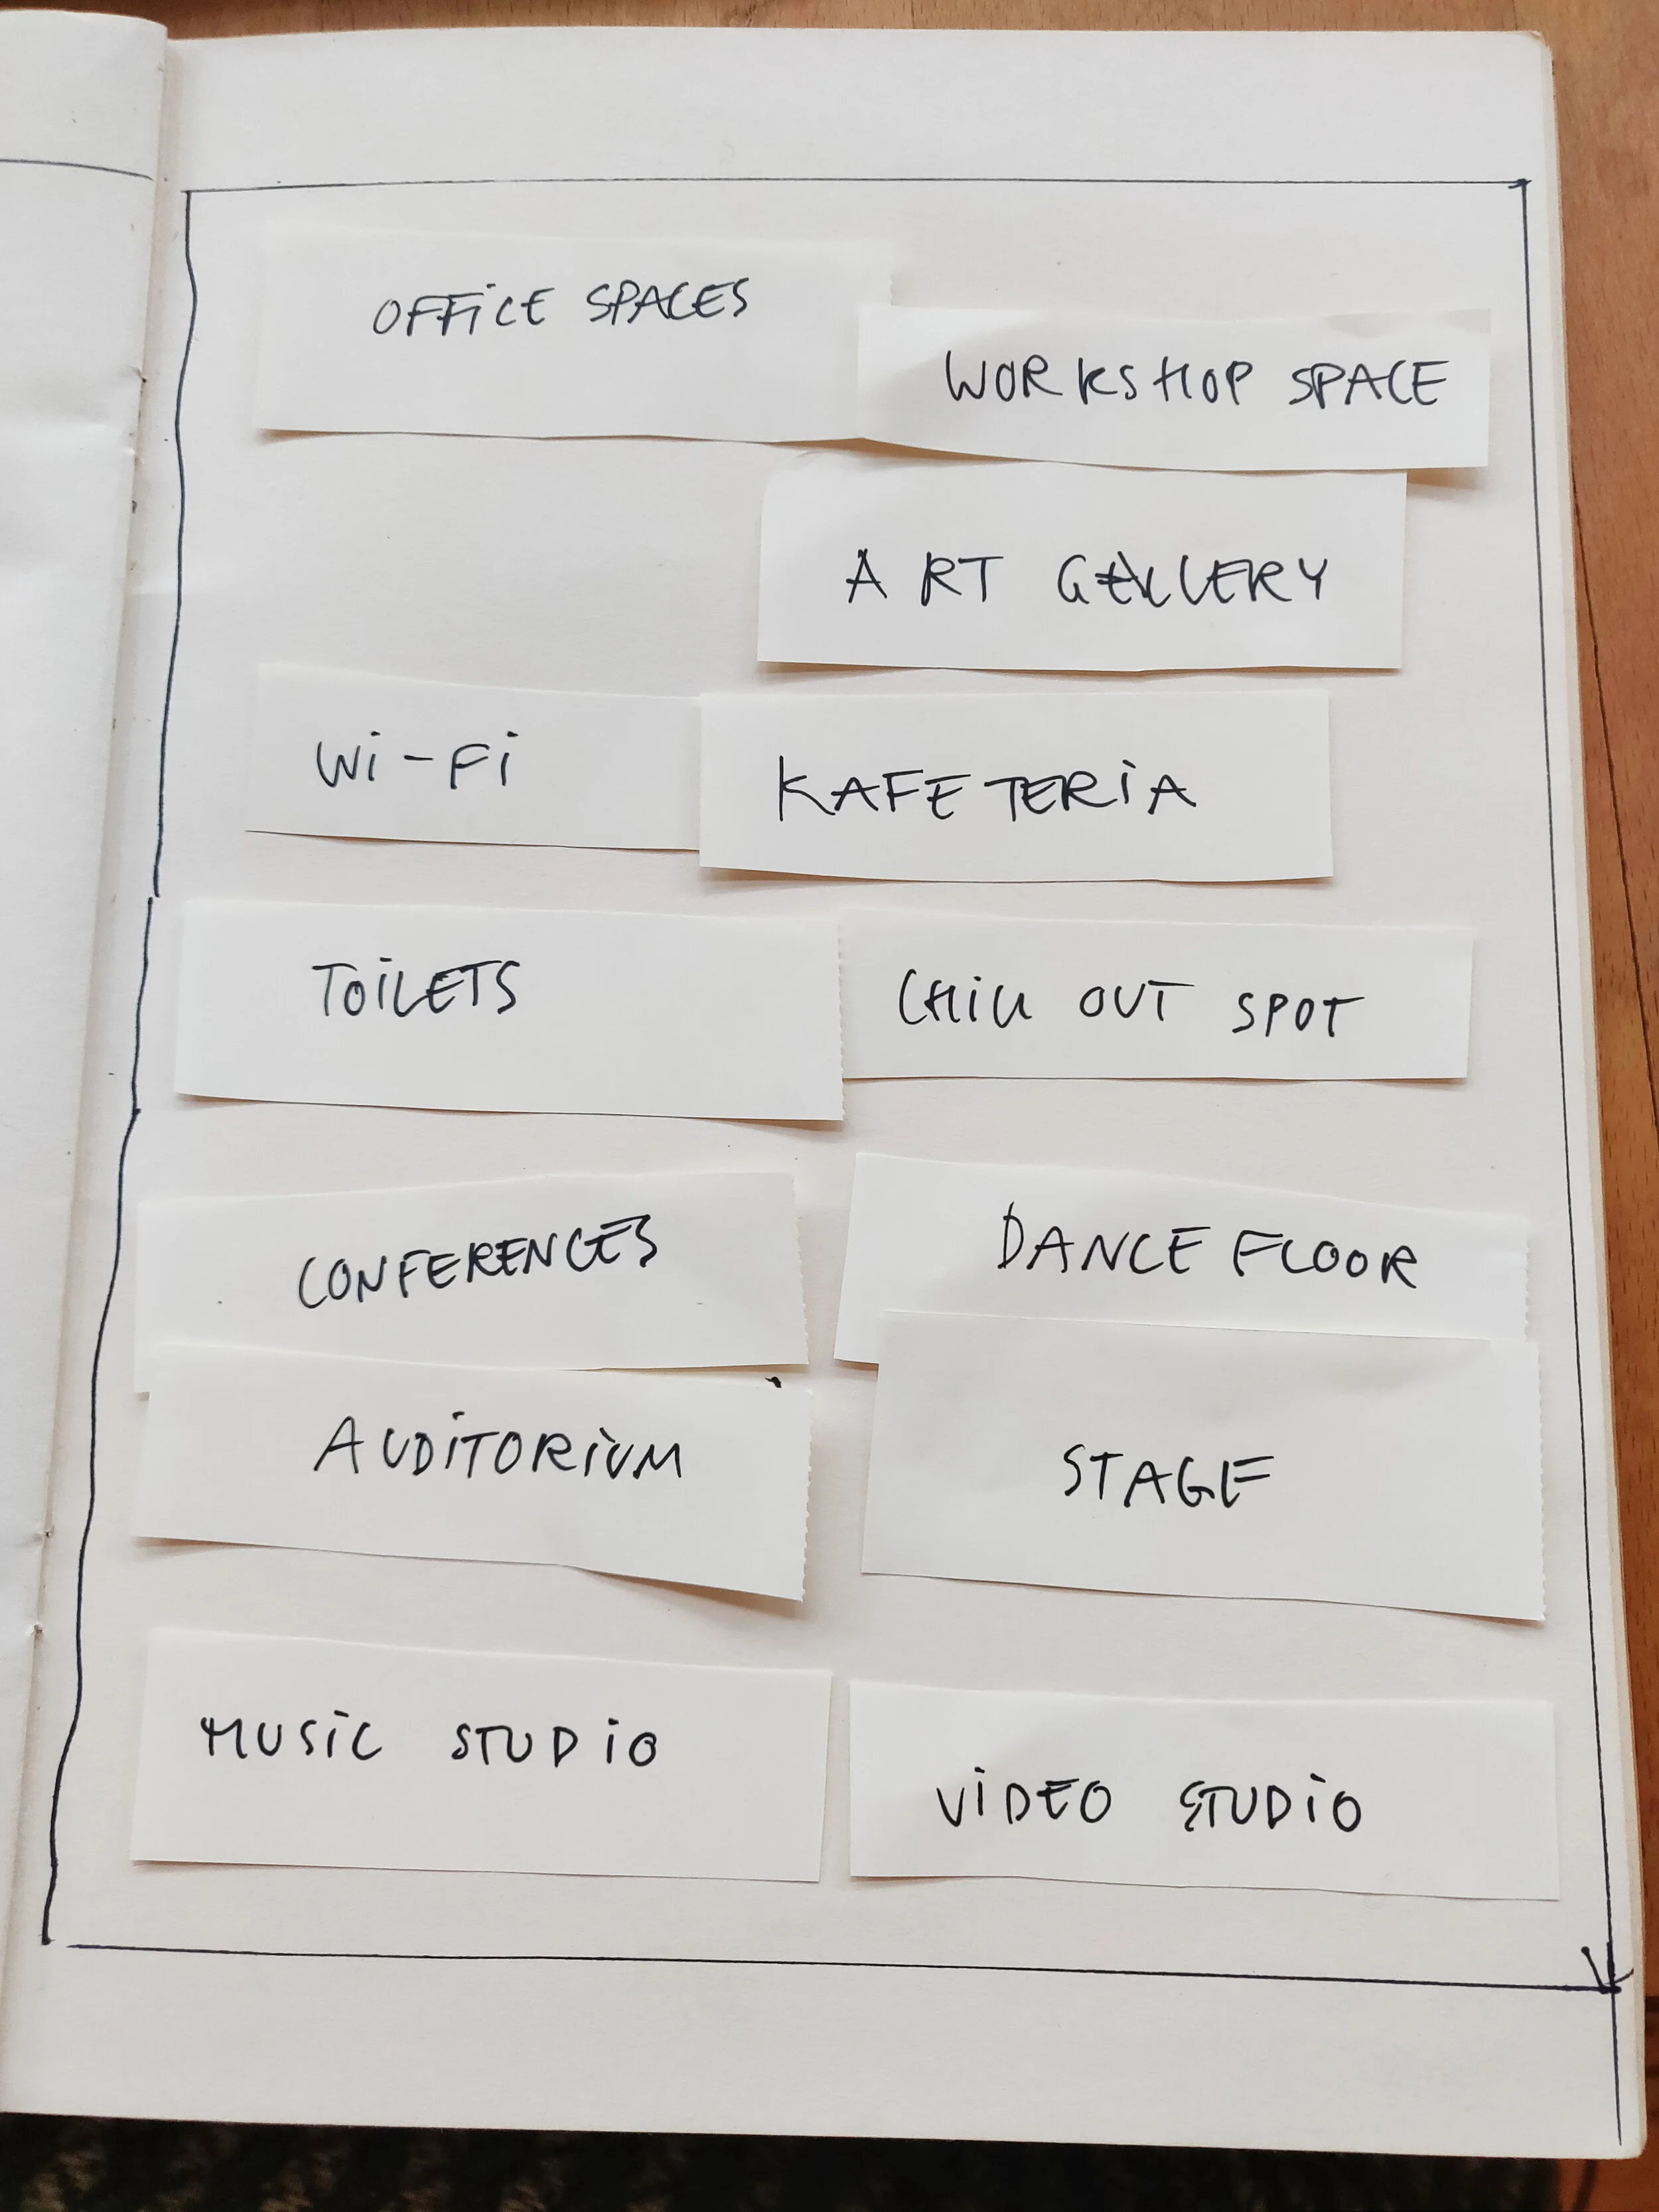 OFFiCE SPACES
WORKSHOP SPACE
ART GALLERY
Wi-Fi
KAFETERiA
TOiLETS
CHiLL OUT SPOT
CONFERENCES
DANCE FLOOR
AUDiTORiUM
STAGE
MUSiC STUDiO
ViDEO STUDiO